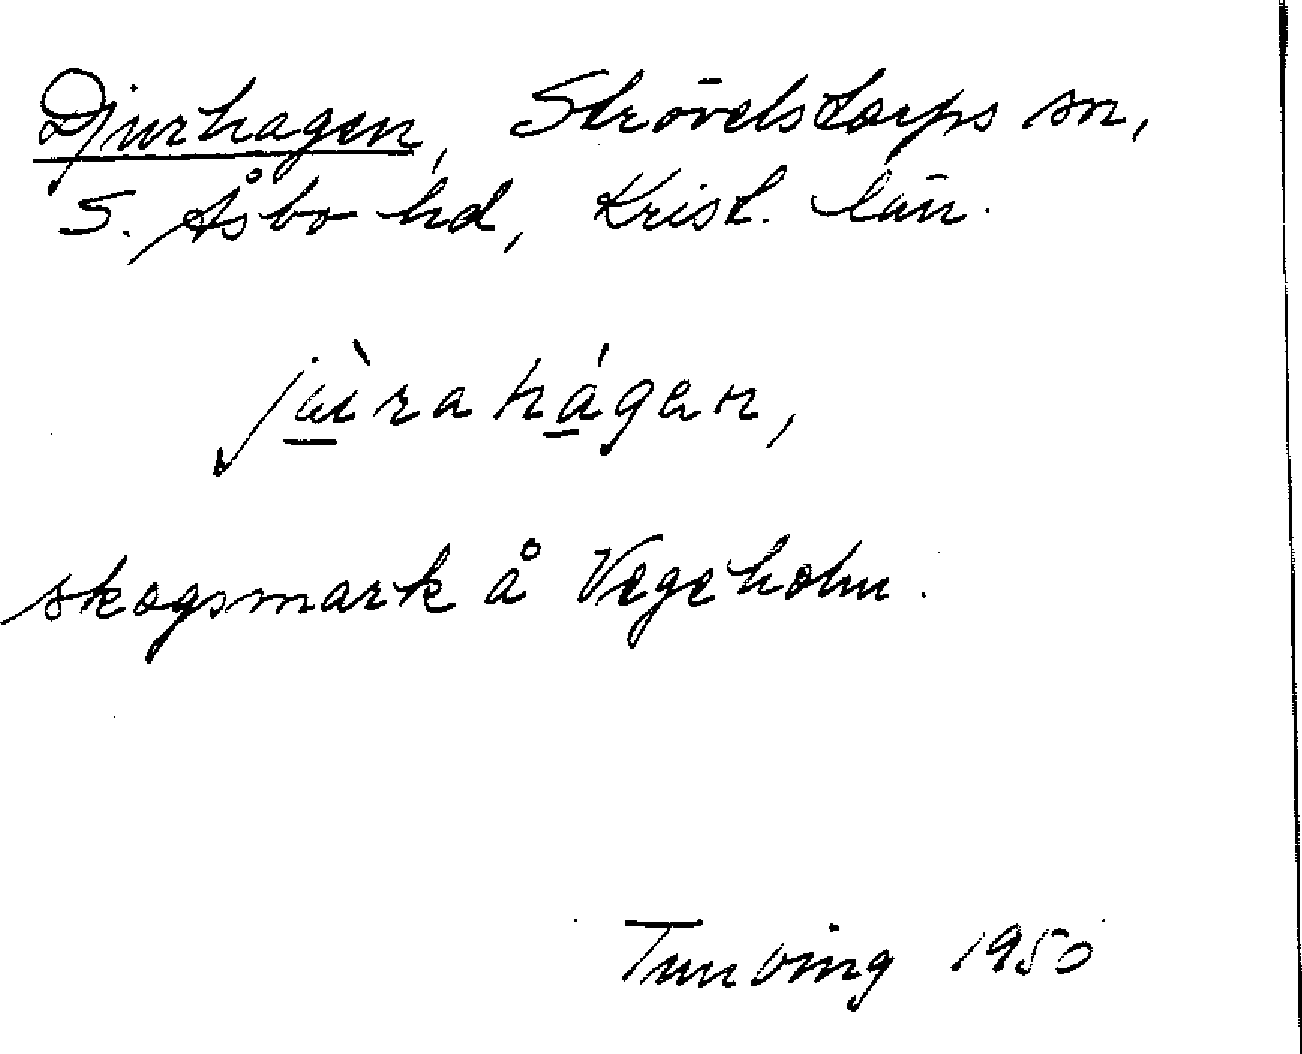 Djurhagen, Strövelstorps sn,
S. Åsbo hd, Krist. län.
jùrahágen,
skogsmark å Vegeholm.
Tunving 1950